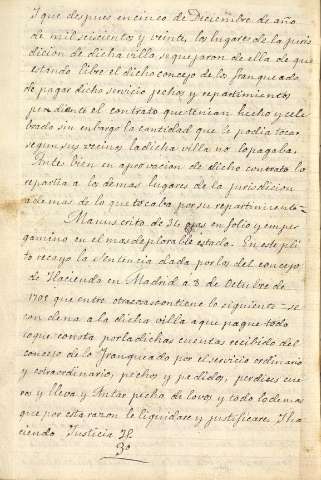 Y que despues en cinco de Diciembre de año
de mil seiscientos y veinte, los lugares de la juris
dicion de dicha villa se quejaron de ella de que
estando libre el dicho concejo de lo franqueado
de pagar dicho servicio pechos y repartimientos
pendiente el contrato que tenian hecho y cele
brado sin enbargo la cantidad que le podia tocar
segun sus vecinos la dicha villa no lo pagaba.
Antes bien en aprovacion de dicho contrato lo
repartia a los demas lugares de la jurisdicion
ademas de lo que tocaba por su repartimiento=
Manuscrito de 34 ojas en folio y en per
gamino en el mas deplorable estado. En este plei
to recayo la Sentencia dada por los del concejo
de Hacienda en Madrid a 3 de Octubre de
1705 que entre otras cosas contiene lo siguiente=se
condena a la dicha villa a que pague todo
lo que consta por la dichas cuentas recibido del
concejo de lo Franqueado por el servicio ordinario
y estraordinario, pechos y pedidos, perdices cue
ros y lleva y Antar pecha de lovos y todo lo demas
que por esta razon le liquidare y justificare Ha
ciendo Justicia
3º